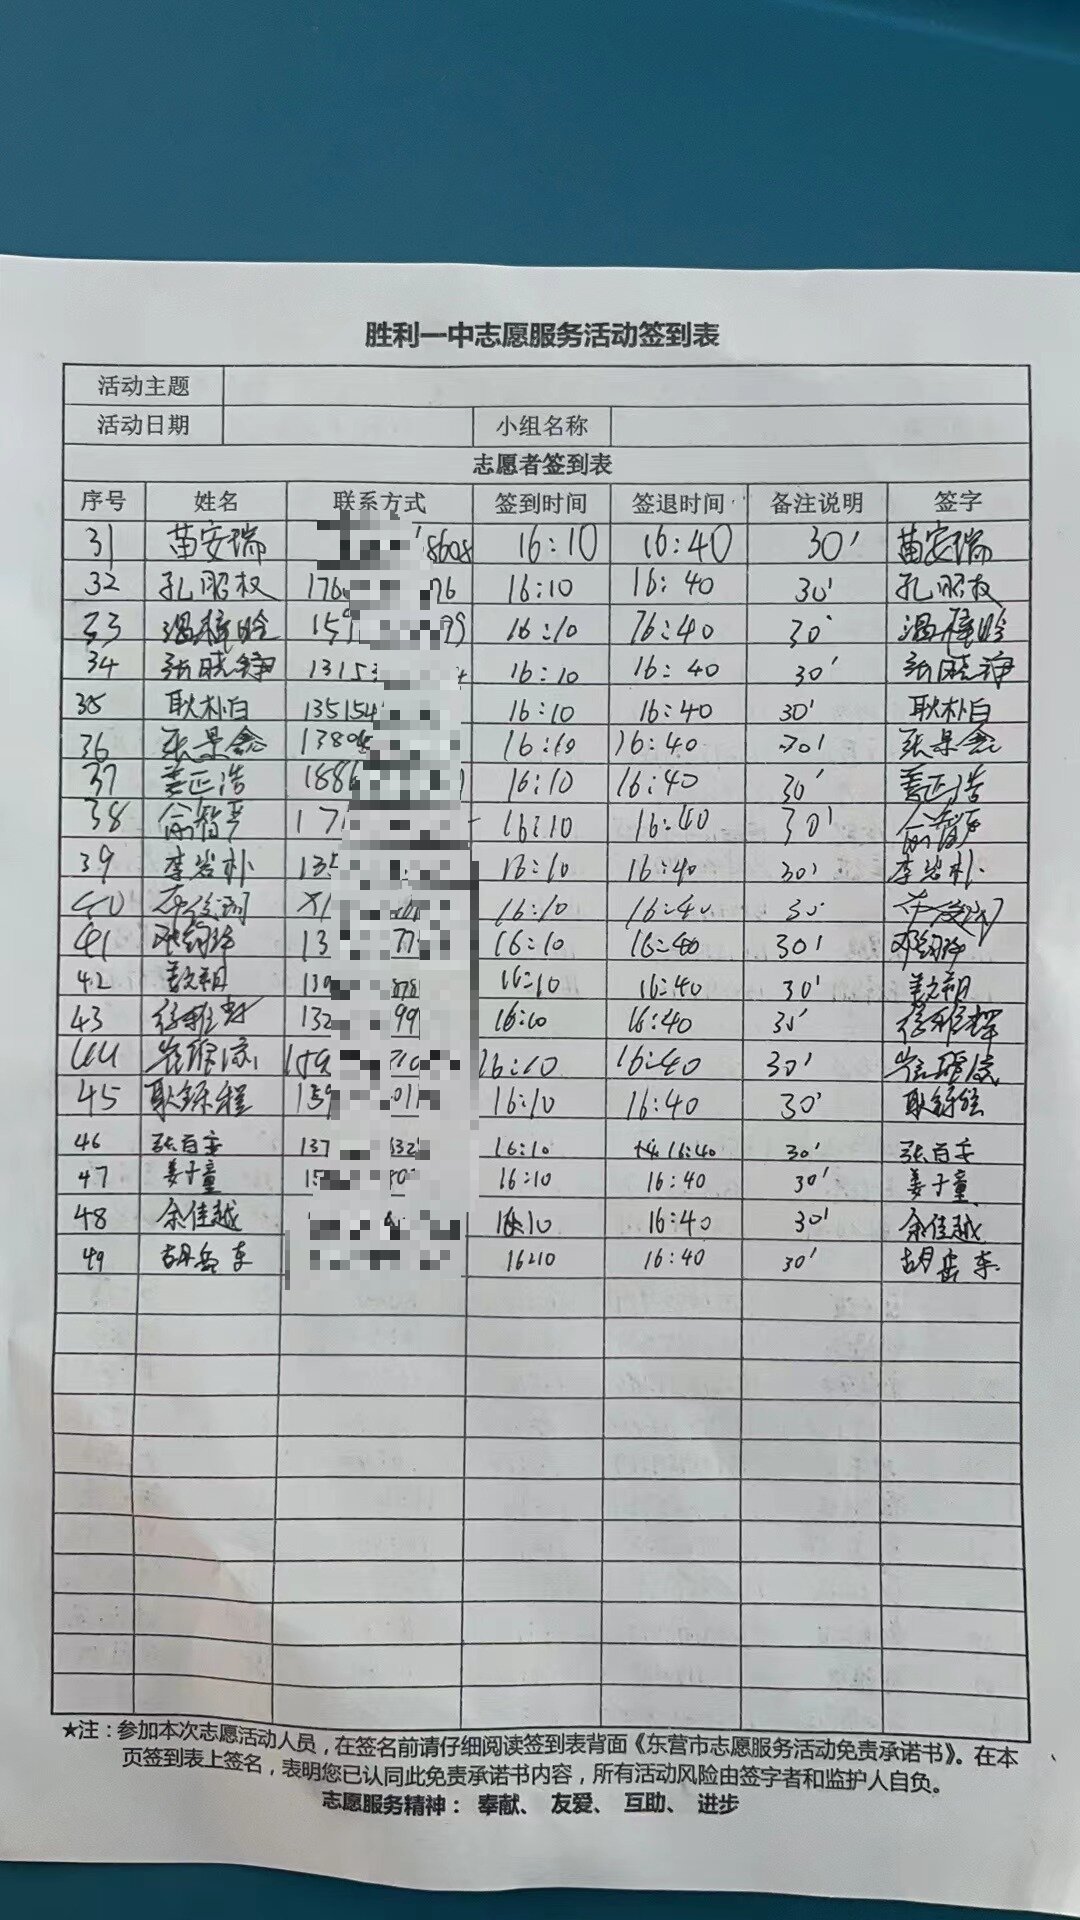 胜利一中志愿服务活动签到表
活动主题
活动日期 小组名称
志愿者签到表
序号 姓名 联系方式 签到时间 签退时间 备注说明 签字
31 苗安瑞 8608 16:10 16:40 30' 苗安瑞
32 孔昭权 176 76 16:10 16:40 30' 孔昭权
33 159 99 16:10 16:40 30' 
34 张晓铮 13153 16:10 16:40 30' 张晓铮
35 耿朴白 135154 16:10 16:40 30' 耿朴白
36 张景 1380 16:10 16:40 30' 张景
37 姜正浩 1886 16:10 16:40 30' 姜正浩
38 俞智严 17 16:10 16:40 30' 俞智严
39 李岩朴 135 16:10 16:40 30' 李岩朴
40 16:10 16:40 30'
41 13 77 16:10 16:40 30'
42 139 16:10 16:40 30'
43 132 99 16:10 16:40 30'
44 16:10 16:40 30'
45 耿 程 159 011 16:10 16:40 30' 耿
46 张百 137 332 16:10 16:40 30' 张百
47 姜子童 16:10 16:40 30' 姜子童
48 余佳越 16:10 16:40 30' 余佳越
49 胡岳东 16:10 16:40 30' 胡岳东
★注：参加本次志愿活动人员，在签名前请仔细阅读签到表背面《东营市志愿服务活动免责承诺书》。在本
页签到表上签名，表明您已认同此免责承诺书内容，所有活动风险由签字者和监护人自负。
志愿服务精神： 奉献、 友爱、 互助、 进步